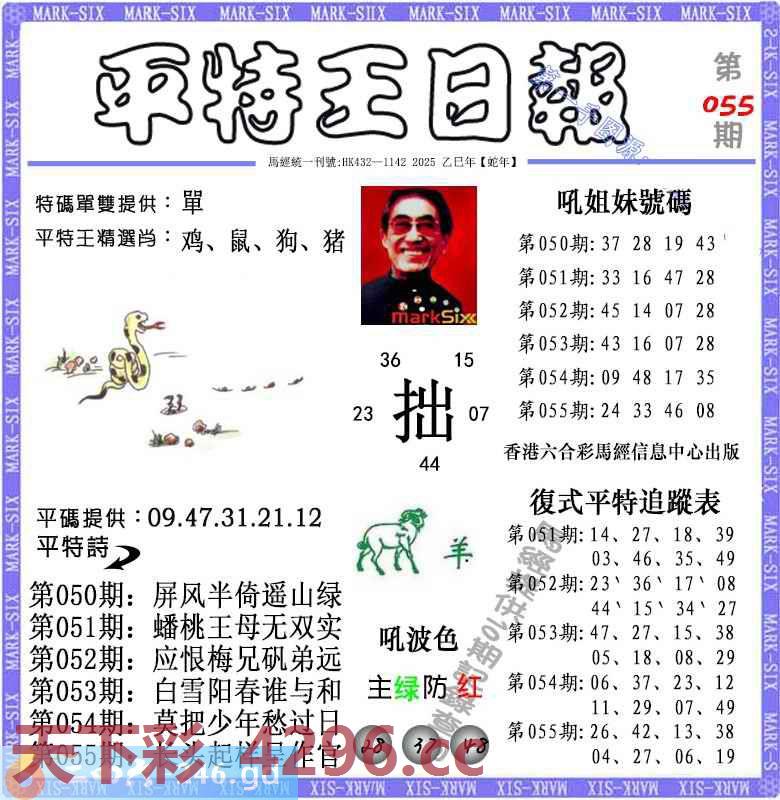 MARK-SIX MARK-SIX MARK-SIX MARK-SIX MARK-SIX MARK-SIX MARK-SIX
平特王日報
第
055
期
馬經統一刊號:HK432—1142 2025 乙巳年【蛇年】
特碼單雙提供：單
平特王精選肖：鸡、鼠、狗、猪
markSix
36 15
23 拙 07
44
吼姐妹號碼
第050期:37 28 19 43
第051期:33 16 47 28
第052期:45 14 07 28
第053期:43 16 07 28
第054期:09 48 17 35
第055期:24 33 46 08
香港六合彩馬經信息中心出版
平碼提供：09.47.31.21.12
平特詩
第050期：屏风半倚遥山绿
第051期：蟠桃王母无双实
第052期：应恨梅兄矾弟远
第053期：白雪阳春谁与和
第054期：莫把少年愁过日
第055期：
羊
吼波色
主绿防红
28 37 48
復式平特追蹤表
第051期:14、27、18、39
03、46、35、49
第052期:23、36、17、08
44、15、34、27
第053期:47、27、15、38
05、18、08、29
第054期:06、37、23、12
11、29、07、49
第055期:26、42、13、38
04、27、06、19
天下彩 4296.cc
MARK-SIX MARK-SIX MARK-SIX MARK-SIX